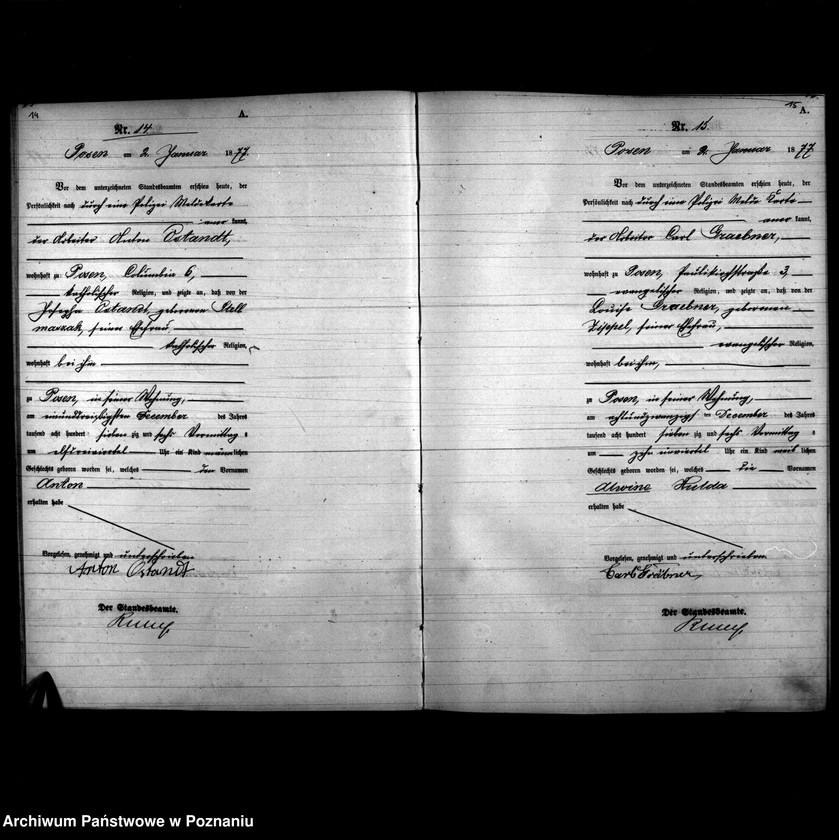 14
A.
Nr. 14
Posen am 2. Januar 1877.
Vor dem unterzeichneten Standesbeamten erschien heute, der
Persönlichkeit nach durch eine Polizei Meldekarte
aner kannt,
der Arbeiter Anton Ostandt,
wohnhaft zu Posen, Columbia 6,
katholischer Religion, und zeigte an, daß von der
Josepha Ostandt, geborenen
seiner Ehefrau
katholischer Religion,
wohnhaft bei ihm
zu Posen, in seiner Wohnung,
am einunddreißigsten December des Jahrs
tausend acht hundert sieben zig und sechs Vormittag s
um elfdreiviertel Uhr ein Kind männlichen
Geschlechts geboren worden sei, welches den Vornamen
Anton
erhalten habe
Vorgelesen, genehmigt und unterschrieben
Anton Ostandt
Der Standesbeamte.
15
A.
Nr. 15.
Posen am 2. Januar 1877
Vor dem unterzeichneten Standesbeamten erschien heute, der
Persönlichkeit nach durch eine Polizei Melde Karte
aner kannt,
der Arbeiter Carl Graebner,
wohnhaft zu Posen, Paulikirchstraße 3,
evangelischer Religion, und zeigte an, daß von der
Louise Graebner, geborenen
Zippel, seiner Ehefrau,
evangelischer Religion,
wohnhaft bei ihm,
zu Posen, in seiner Wohnung,
am achtundzwanzigsten December des Jahrs
tausend acht hundert sieben zig und sechs Vormittag s
um zehn einviertel Uhr ein Kind weib lichen
Geschlechts geboren worden sei, welches die Vornamen
Alwine Hulda
erhalten habe
Vorgelesen, genehmigt und unterschrieben
Carl Gräbner
Der Standesbeamte.
Archiwum Państwowe w Poznaniu